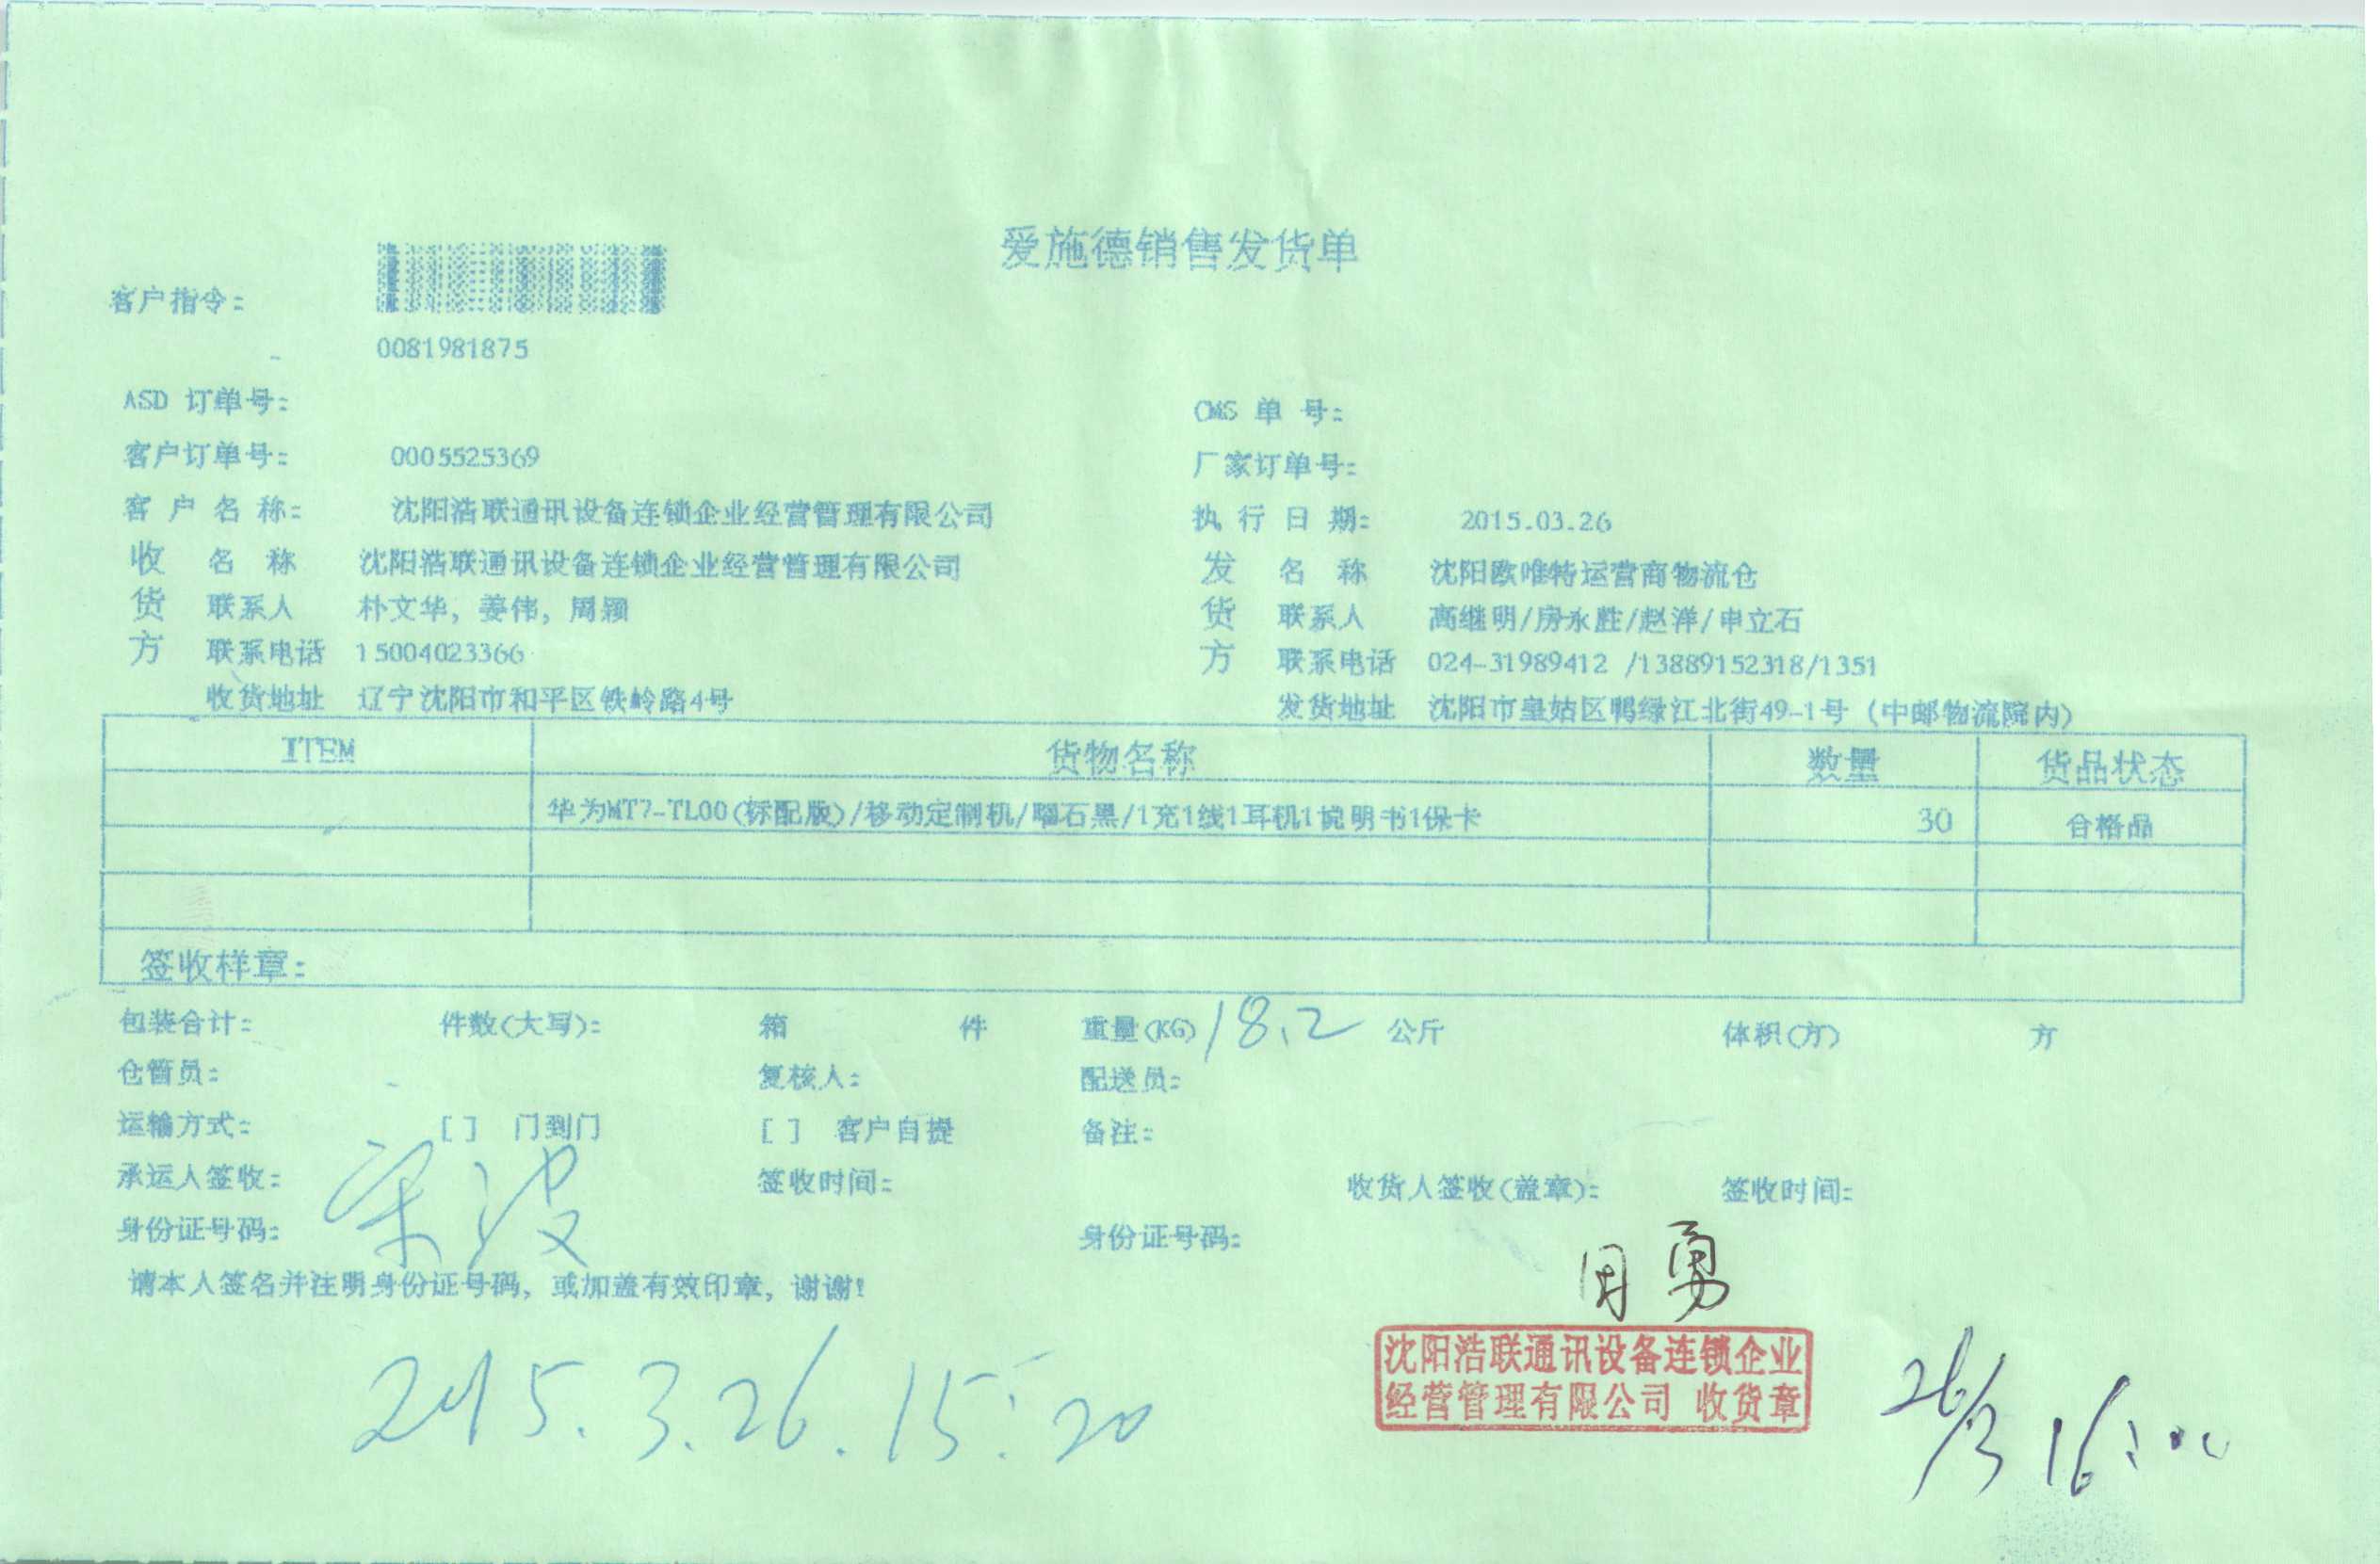 爱施德销售发货单
客户指令:
0081981875
ASD 订单号:
CMS 单 号:
客户订单号: 0005525369
厂家订单号:
客 户 名 称: 沈阳浩联通讯设备连锁企业经营管理有限公司
执 行 日 期: 2015.03.26
收 名 称 沈阳浩联通讯设备连锁企业经营管理有限公司
发 名 称 沈阳欧唯特运营商物流仓
货 联系人 朴文华, 姜伟, 周颖
货 联系人 高继明/房永胜/赵洋/申立石
方 联系电话 15004023366
方 联系电话 024-31989412 /13889152318/1351
收货地址 辽宁沈阳市和平区铁岭路4号
发货地址 沈阳市皇姑区鸭绿江北街49-1号 (中邮物流院内)
ITEM 货物名称 数量 货品状态
华为MT7-TL00(标配版)/移动定制机/曜石黑/1充1线1耳机1说明书1保卡 30 合格品
签收样章:
包装合计: 件数(大写): 箱 件 重量(KG) 18.2 公斤 体积(方) 方
仓管员: 复核人: 配送员:
运输方式: [ ] 门到门 [ ] 客户自提 备注:
承运人签收: 宋波 签收时间: 收货人签收(盖章): 签收时间:
身份证号码: 身份证号码:
周勇
请本人签名并注明身份证号码, 或加盖有效印章, 谢谢!
沈阳浩联通讯设备连锁企业
经营管理有限公司 收货章
2015.3.26.15:20
26/3 16:00